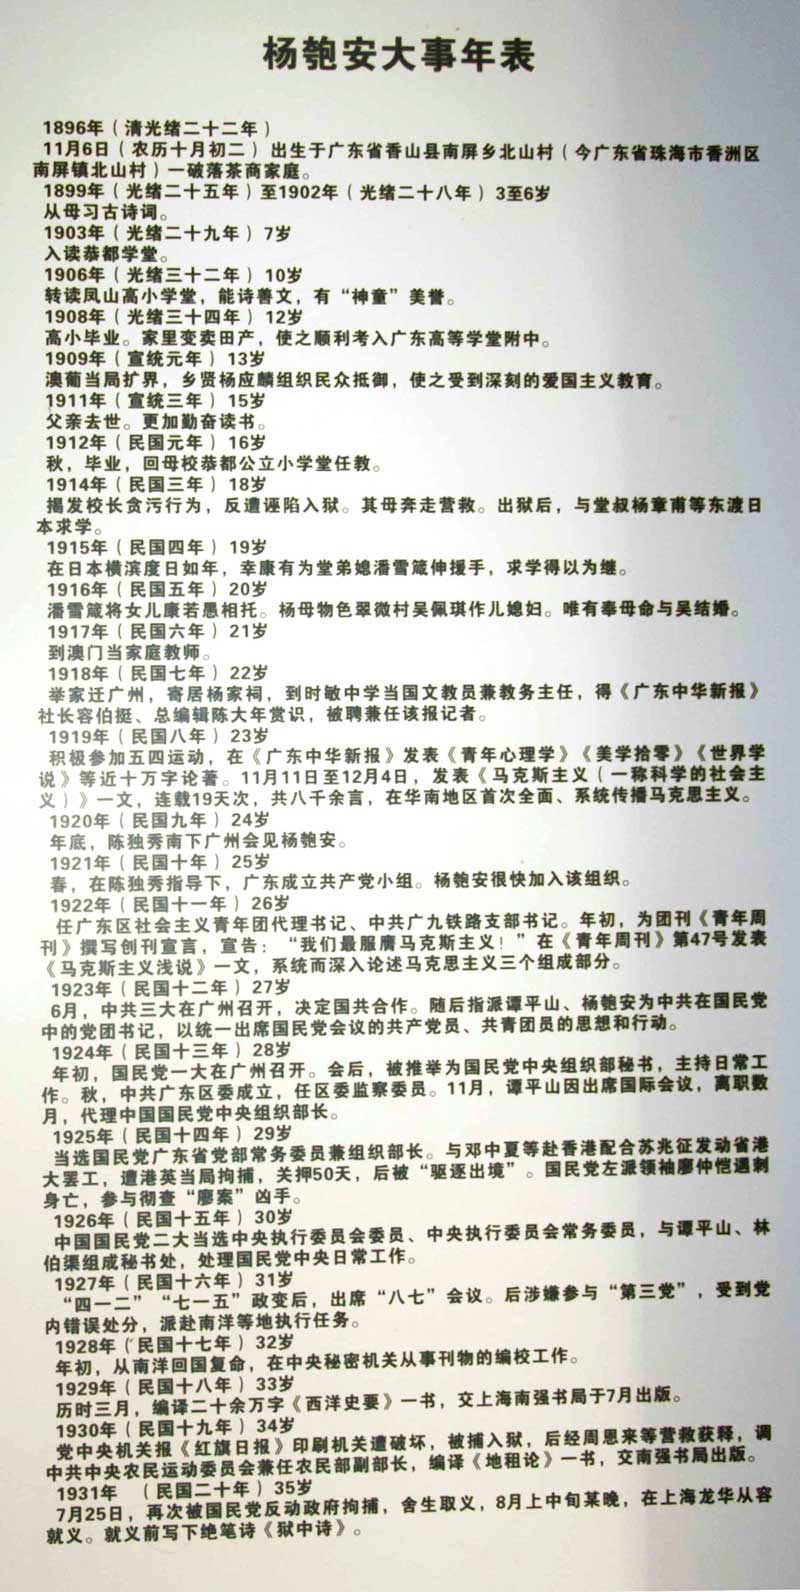 杨匏安大事年表
1896年（清光绪二十二年）
11月6日（农历十月初二）出生于广东省香山县南屏乡北山村（今广东省珠海市香洲区
南屏镇北山村）一破落茶商家庭。
1899年（光绪二十五年）至1902年（光绪二十八年）3至6岁
从母习古诗词。
1903年（光绪二十九年）7岁
入读恭都学堂。
1906年（光绪三十二年）10岁
转读凤山高小学堂，能诗善文，有“神童”美誉。
1908年（光绪三十四年）12岁
高小毕业。家里变卖田产，使之顺利考入广东高等学堂附中。
1909年（宣统元年）13岁
澳葡当局扩界，乡贤杨应麟组织民众抵御，使之受到深刻的爱国主义教育。
1911年（宣统三年）15岁
父亲去世。更加勤奋读书。
1912年（民国元年）16岁
秋，毕业，回母校恭都公立小学堂任教。
1914年（民国三年）18岁
揭发校长贪污行为，反遭诬陷入狱。其母奔走营救。出狱后，与堂叔杨章甫等东渡日
本求学。
1915年（民国四年）19岁
在日本横滨度日如年，幸康有为堂弟媳潘雪箴伸援手，求学得以为继。
1916年（民国五年）20岁
潘雪箴将女儿康若愚相托。杨母物色翠微村吴佩琪作儿媳妇。唯有奉母命与吴结婚。
1917年（民国六年）21岁
到澳门当家庭教师。
1918年（民国七年）22岁
举家迁广州，寄居杨家祠，到时敏中学当国文教员兼教务主任，得《广东中华新报》
社长容伯挺、总编辑陈大年赏识，被聘兼任该报记者。
1919年（民国八年）23岁
积极参加五四运动，在《广东中华新报》发表《青年心理学》《美学拾零》《世界学
说》等近十万字论著。11月11日至12月4日，发表《马克斯主义（一称科学的社会主
义）》一文，连载19天次，共八千余言，在华南地区首次全面、系统传播马克思主义。
1920年（民国九年）24岁
年底，陈独秀南下广州会见杨匏安。
1921年（民国十年）25岁
春，在陈独秀指导下，广东成立共产党小组。杨匏安很快加入该组织。
1922年（民国十一年）26岁
任广东区社会主义青年团代理书记、中共广九铁路支部书记。年初，为团刊《青年周
刊》撰写创刊宣言，宣告：“我们最服膺马克斯主义！”在《青年周刊》第47号发表
《马克斯主义浅说》一文，系统而深入论述马克思主义三个组成部分。
1923年（民国十二年）27岁
6月，中共三大在广州召开，决定国共合作。随后指派谭平山、杨匏安为中共在国民党
中的党团书记，以统一出席国民党会议的共产党员、共青团员的思想和行动。
1924年（民国十三年）28岁
年初，国民党一大在广州召开。会后，被推举为国民党中央组织部秘书，主持日常工
作。秋，中共广东区委成立，任区委监察委员。11月，谭平山因出席国际会议，离职数
月，代理中国国民党中央组织部长。
1925年（民国十四年）29岁
当选国民党广东省党部常务委员兼组织部长。与邓中夏等赴香港配合苏兆征发动省港
大罢工，遭港英当局拘捕，关押50天，后被“驱逐出境”。国民党左派领袖廖仲恺遇刺
身亡，参与彻查“廖案”凶手。
1926年（民国十五年）30岁
中国国民党二大当选中央执行委员会委员、中央执行委员会常务委员，与谭平山、林
伯渠组成秘书处，处理国民党中央日常工作。
1927年（民国十六年）31岁
“四一二”“七一五”政变后，出席“八七”会议。后涉嫌参与“第三党”，受到党
内错误处分，派赴南洋等地执行任务。
1928年（民国十七年）32岁
年初，从南洋回国复命，在中央秘密机关从事刊物的编校工作。
1929年（民国十八年）33岁
历时三月，编译二十余万字《西洋史要》一书，交上海南强书局于7月出版。
1930年（民国十九年）34岁
党中央机关报《红旗日报》印刷机关遭破坏，被捕入狱，后经周恩来等营救获释，调
中共中央农民运动委员会兼任农民部副部长，编译《地租论》一书，交南强书局出版。
1931年 （民国二十年）35岁
7月25日，再次被国民党反动政府拘捕，舍生取义，8月上中旬某晚，在上海龙华从容
就义。就义前写下绝笔诗《狱中诗》。